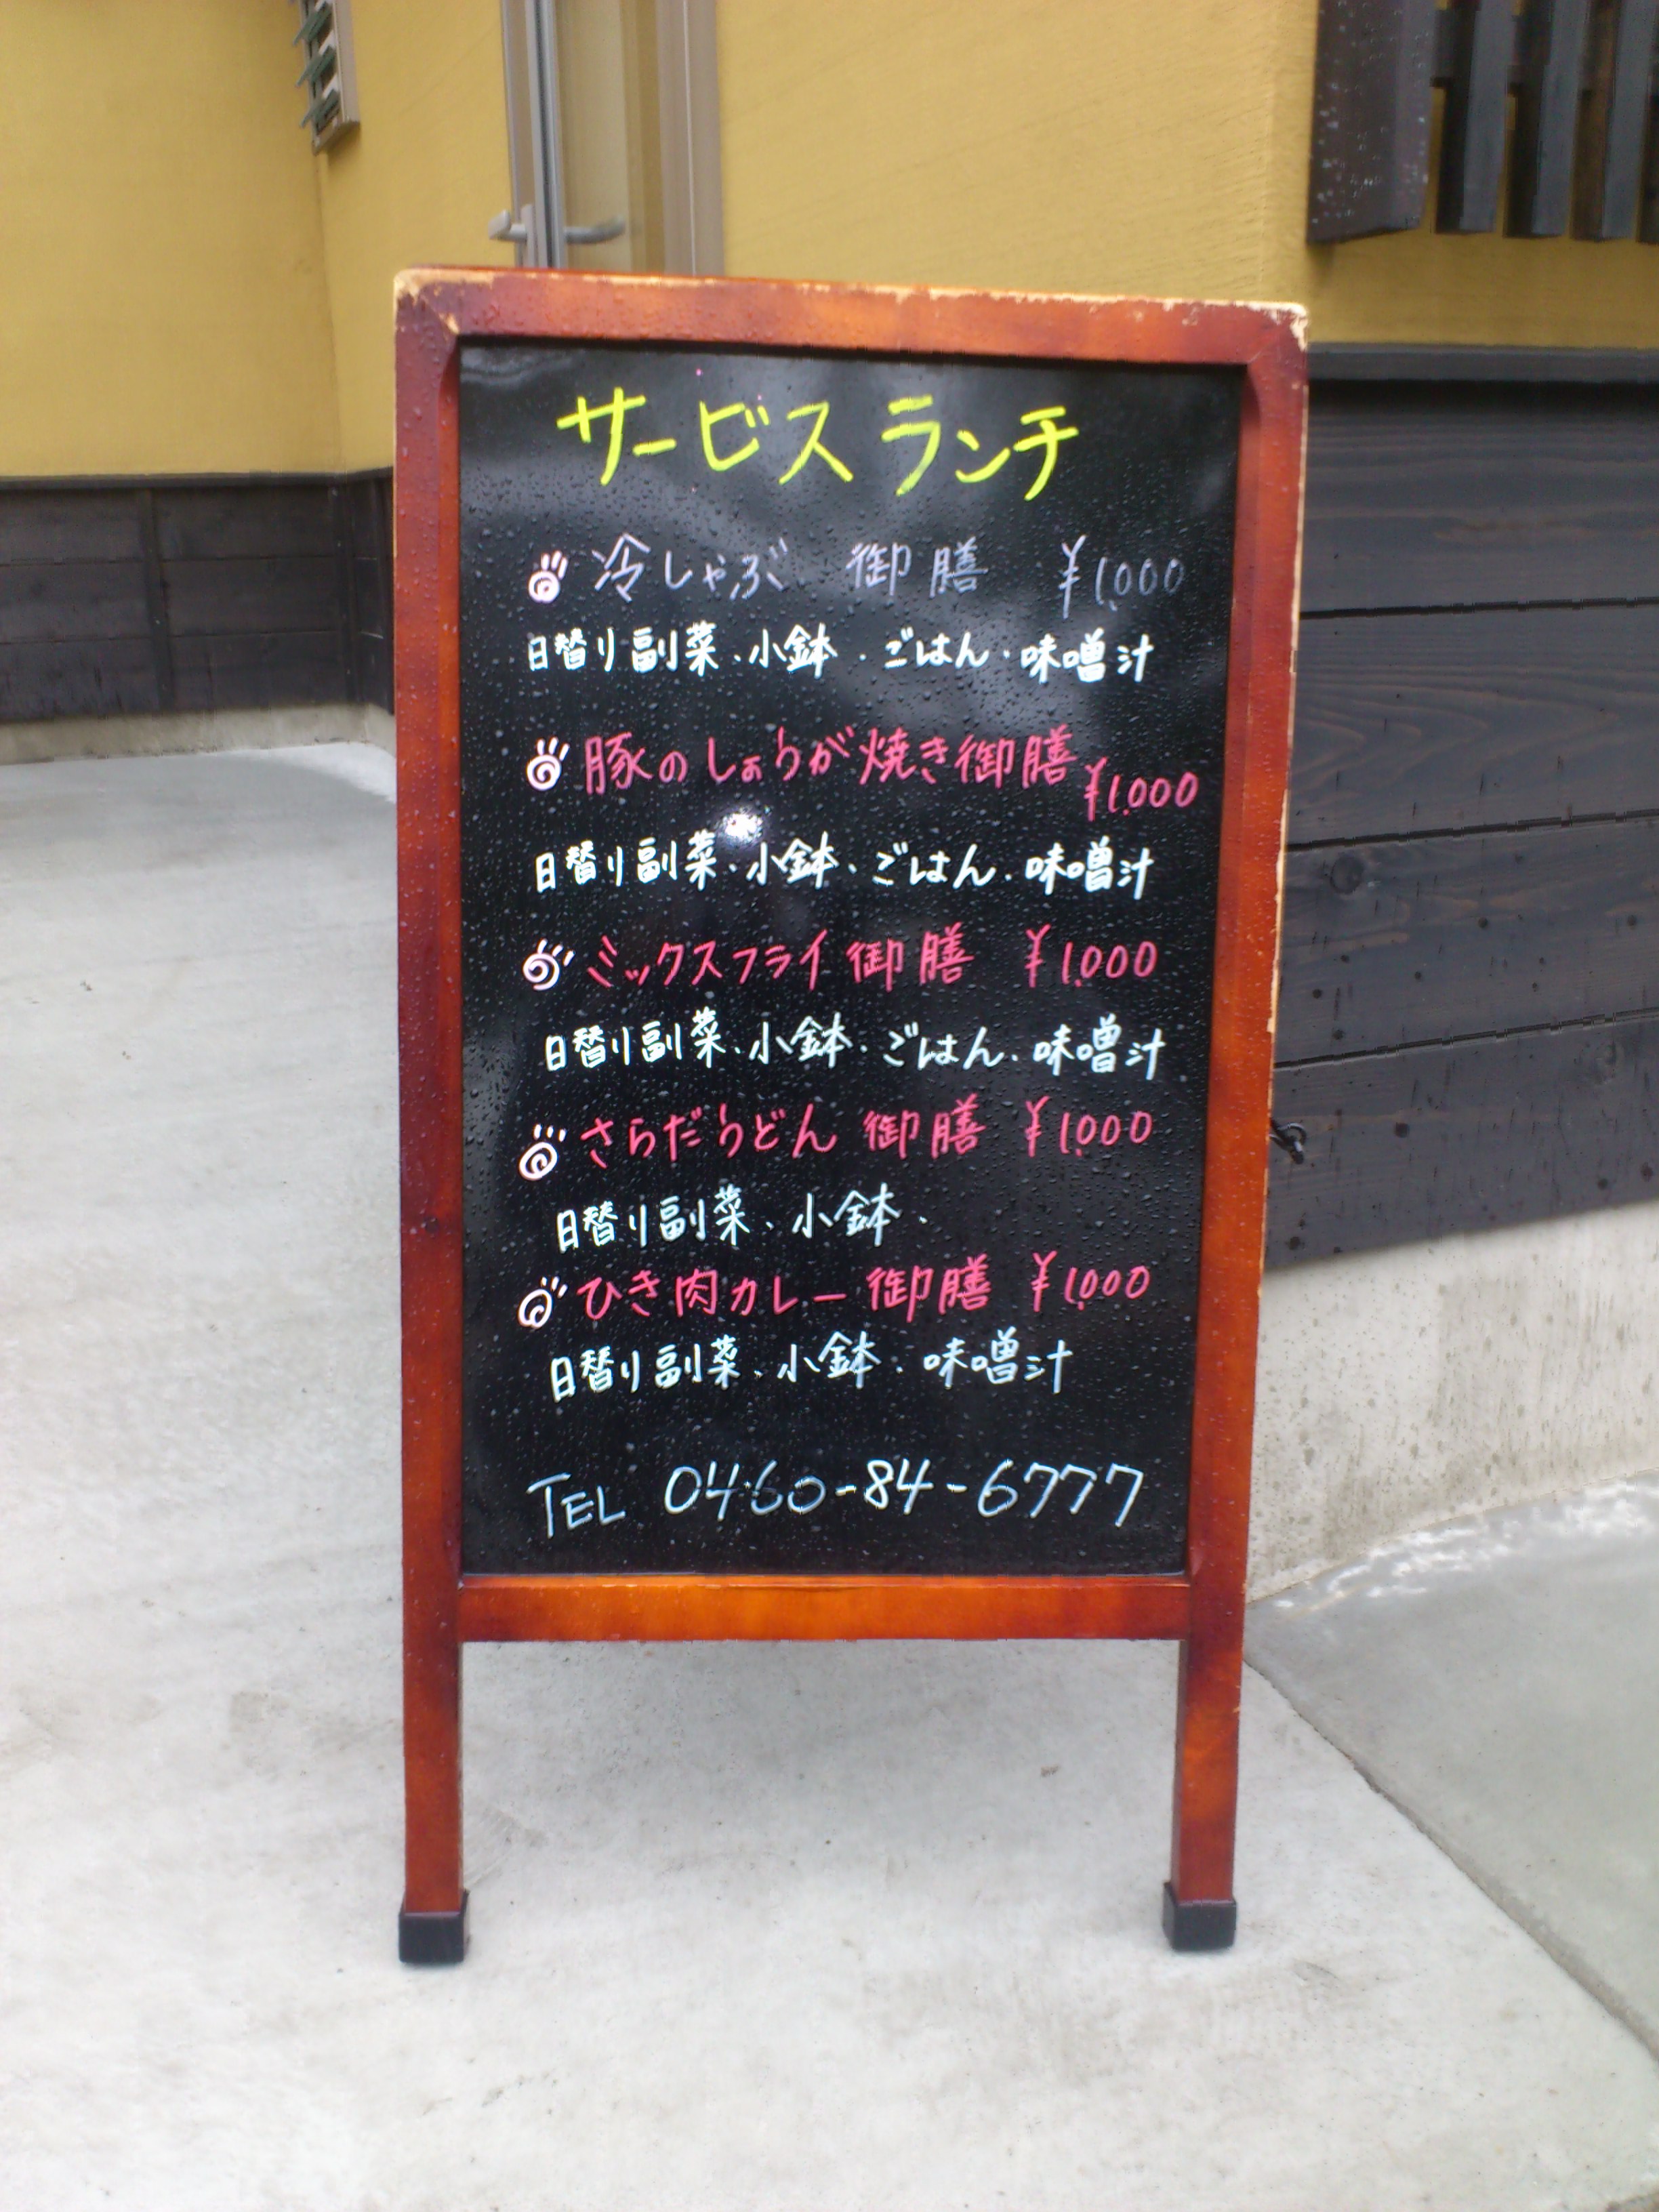 サービスランチ
冷しゃぶ 御膳 ¥1,000
日替り副菜・小鉢・ごはん・味噌汁
豚のしょうが焼き御膳 ¥1,000
日替り副菜・小鉢・ごはん・味噌汁
ミックスフライ御膳 ¥1,000
日替り副菜・小鉢・ごはん・味噌汁
さらだうどん 御膳 ¥1,000
日替り副菜・小鉢・
ひき肉カレー御膳 ¥1,000
日替り副菜・小鉢・味噌汁
TEL 0460-84-6777